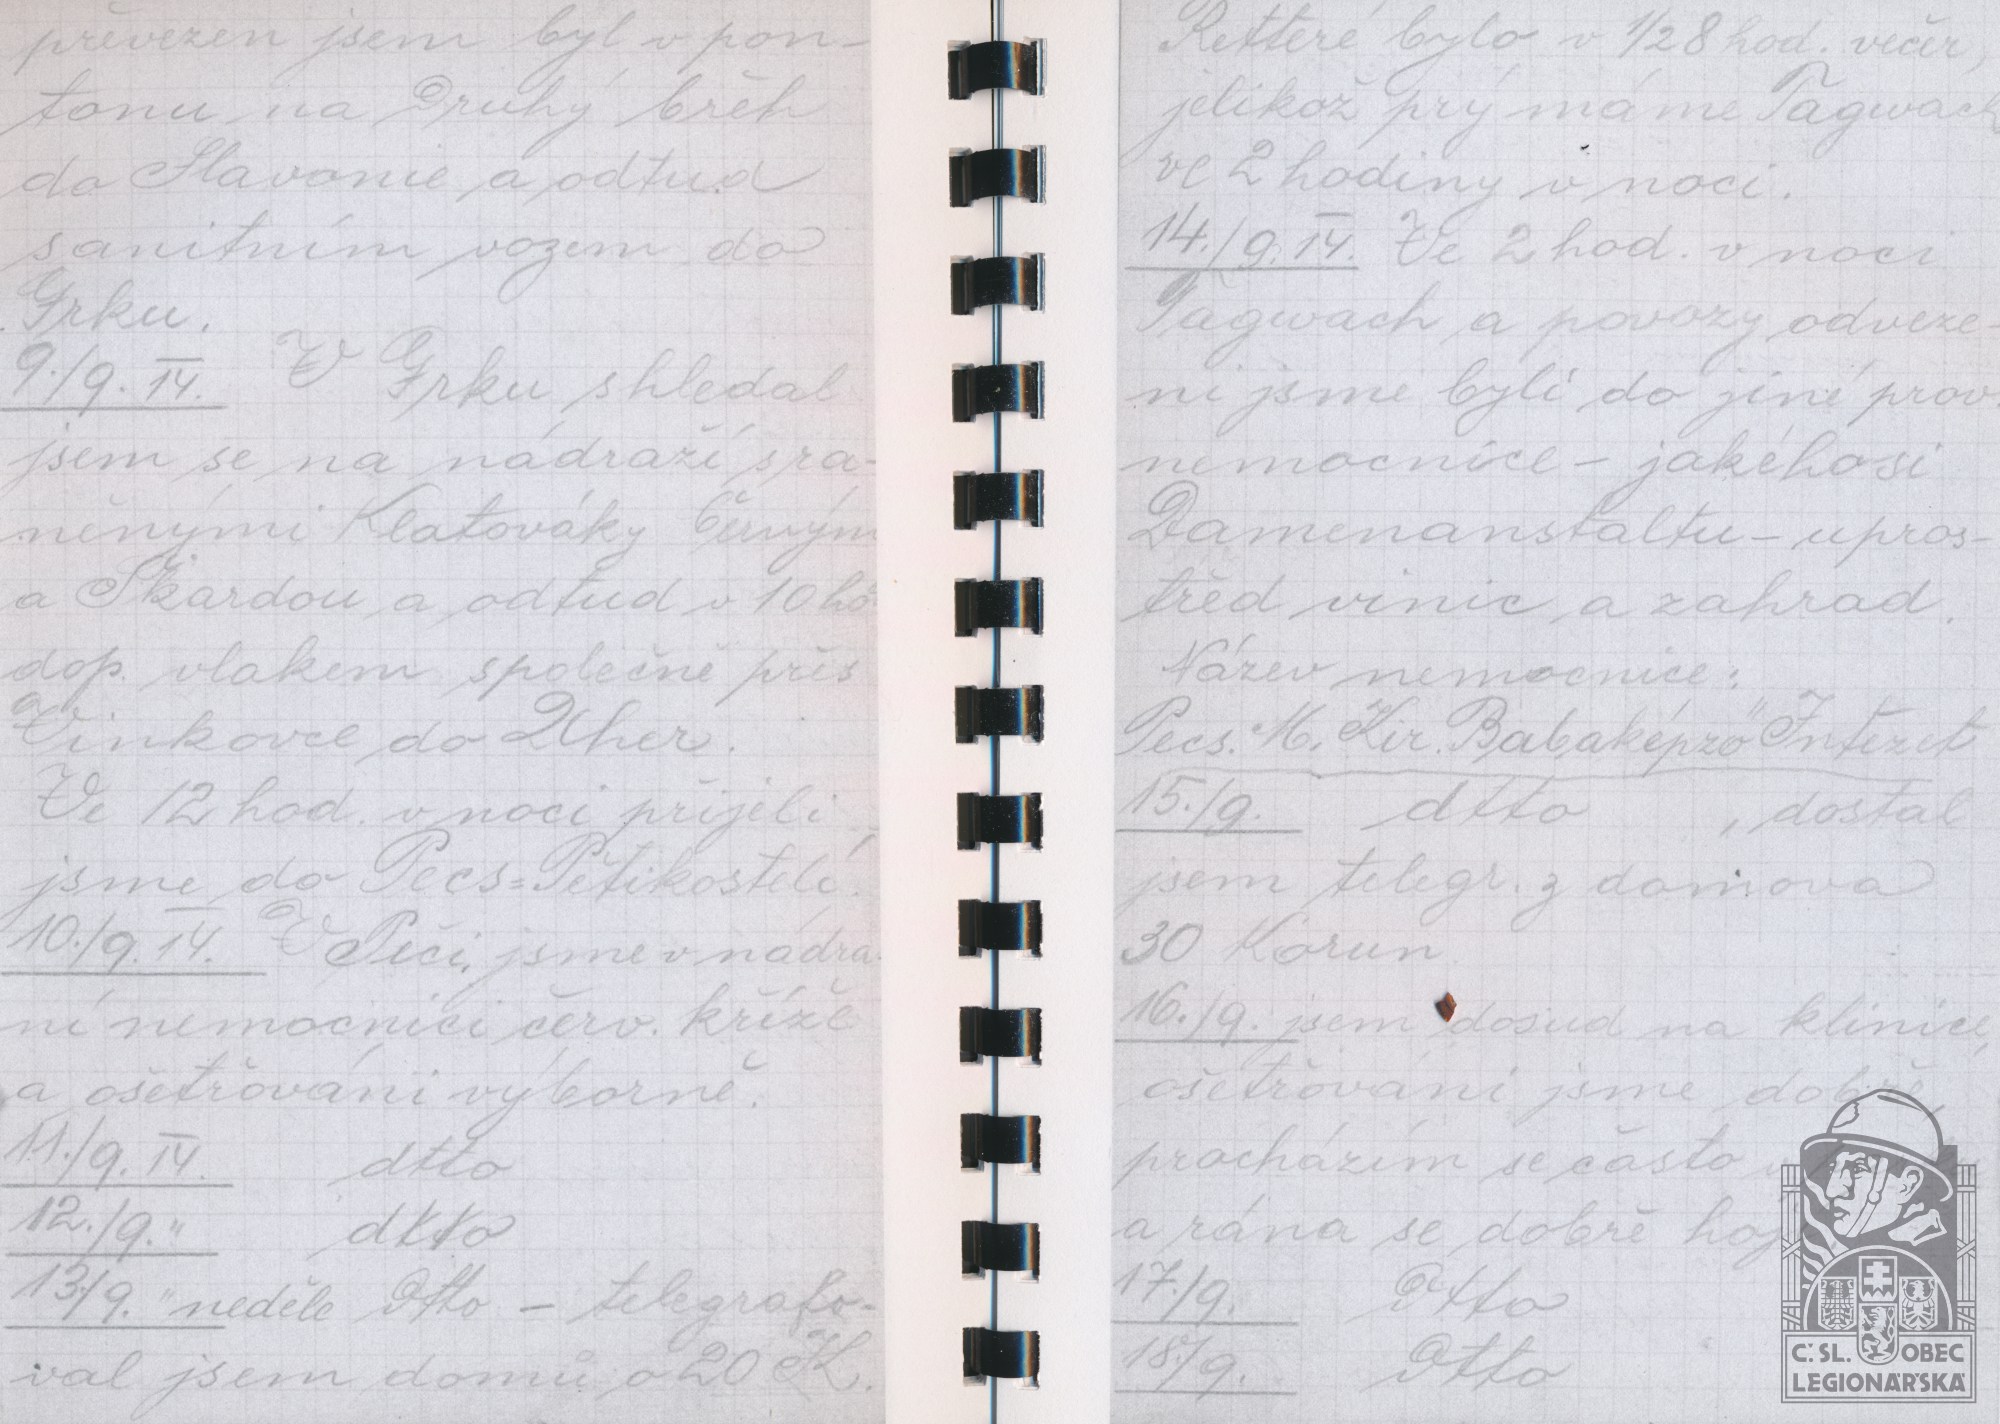 převezen jsem byl v pon-
tonu na Druhý břeh
do Slavonie a odtud
sanitním vozem do
Grku.
9./9. 14. V Grku shledal
jsem se na nádraží s ra-
něnými Klatováky Červým
a Škardou a odtud v 10 ho
dop. vlakem společně přes
Vinkovce do Uher.
Ve 12 hod. v noci přijeli
jsme do Pécs=Pětikostelí.
10./9. 14. V Péči, jsme v nádra
ní nemocnici červ. kříže
a ošetřováni výborně.
11./9. 14. dtto
12./9. " dtto
13/9. " neděle dtto – telegrafo-
val jsem domů o 20 K.
Retteré bylo v 1/28 hod. večer,
jelikož prý máme Tagwach
ve 2 hodiny v noci.
14./9. 14. Ve 2 hod. v noci
Tagwach a povozy odveze-
ni jsme byli do jiné prov.
nemocnice – jakéhosi
Damenanstaltu – upros-
třed vinic a zahrad.
Název nemocnice:
Pecs. M. Kir. Babaképző Intézet
15./9. dtto , dostal
jsem telegr. z domova
30 Korun
16./9. jsem dosud na klinice,
ošetřováni jsme dobře,
procházím se často v
a rána se dobře hoj
17./9. Dtto
18./9. Dtto
Č.SL. OBEC
LEGIONÁŘSKÁ